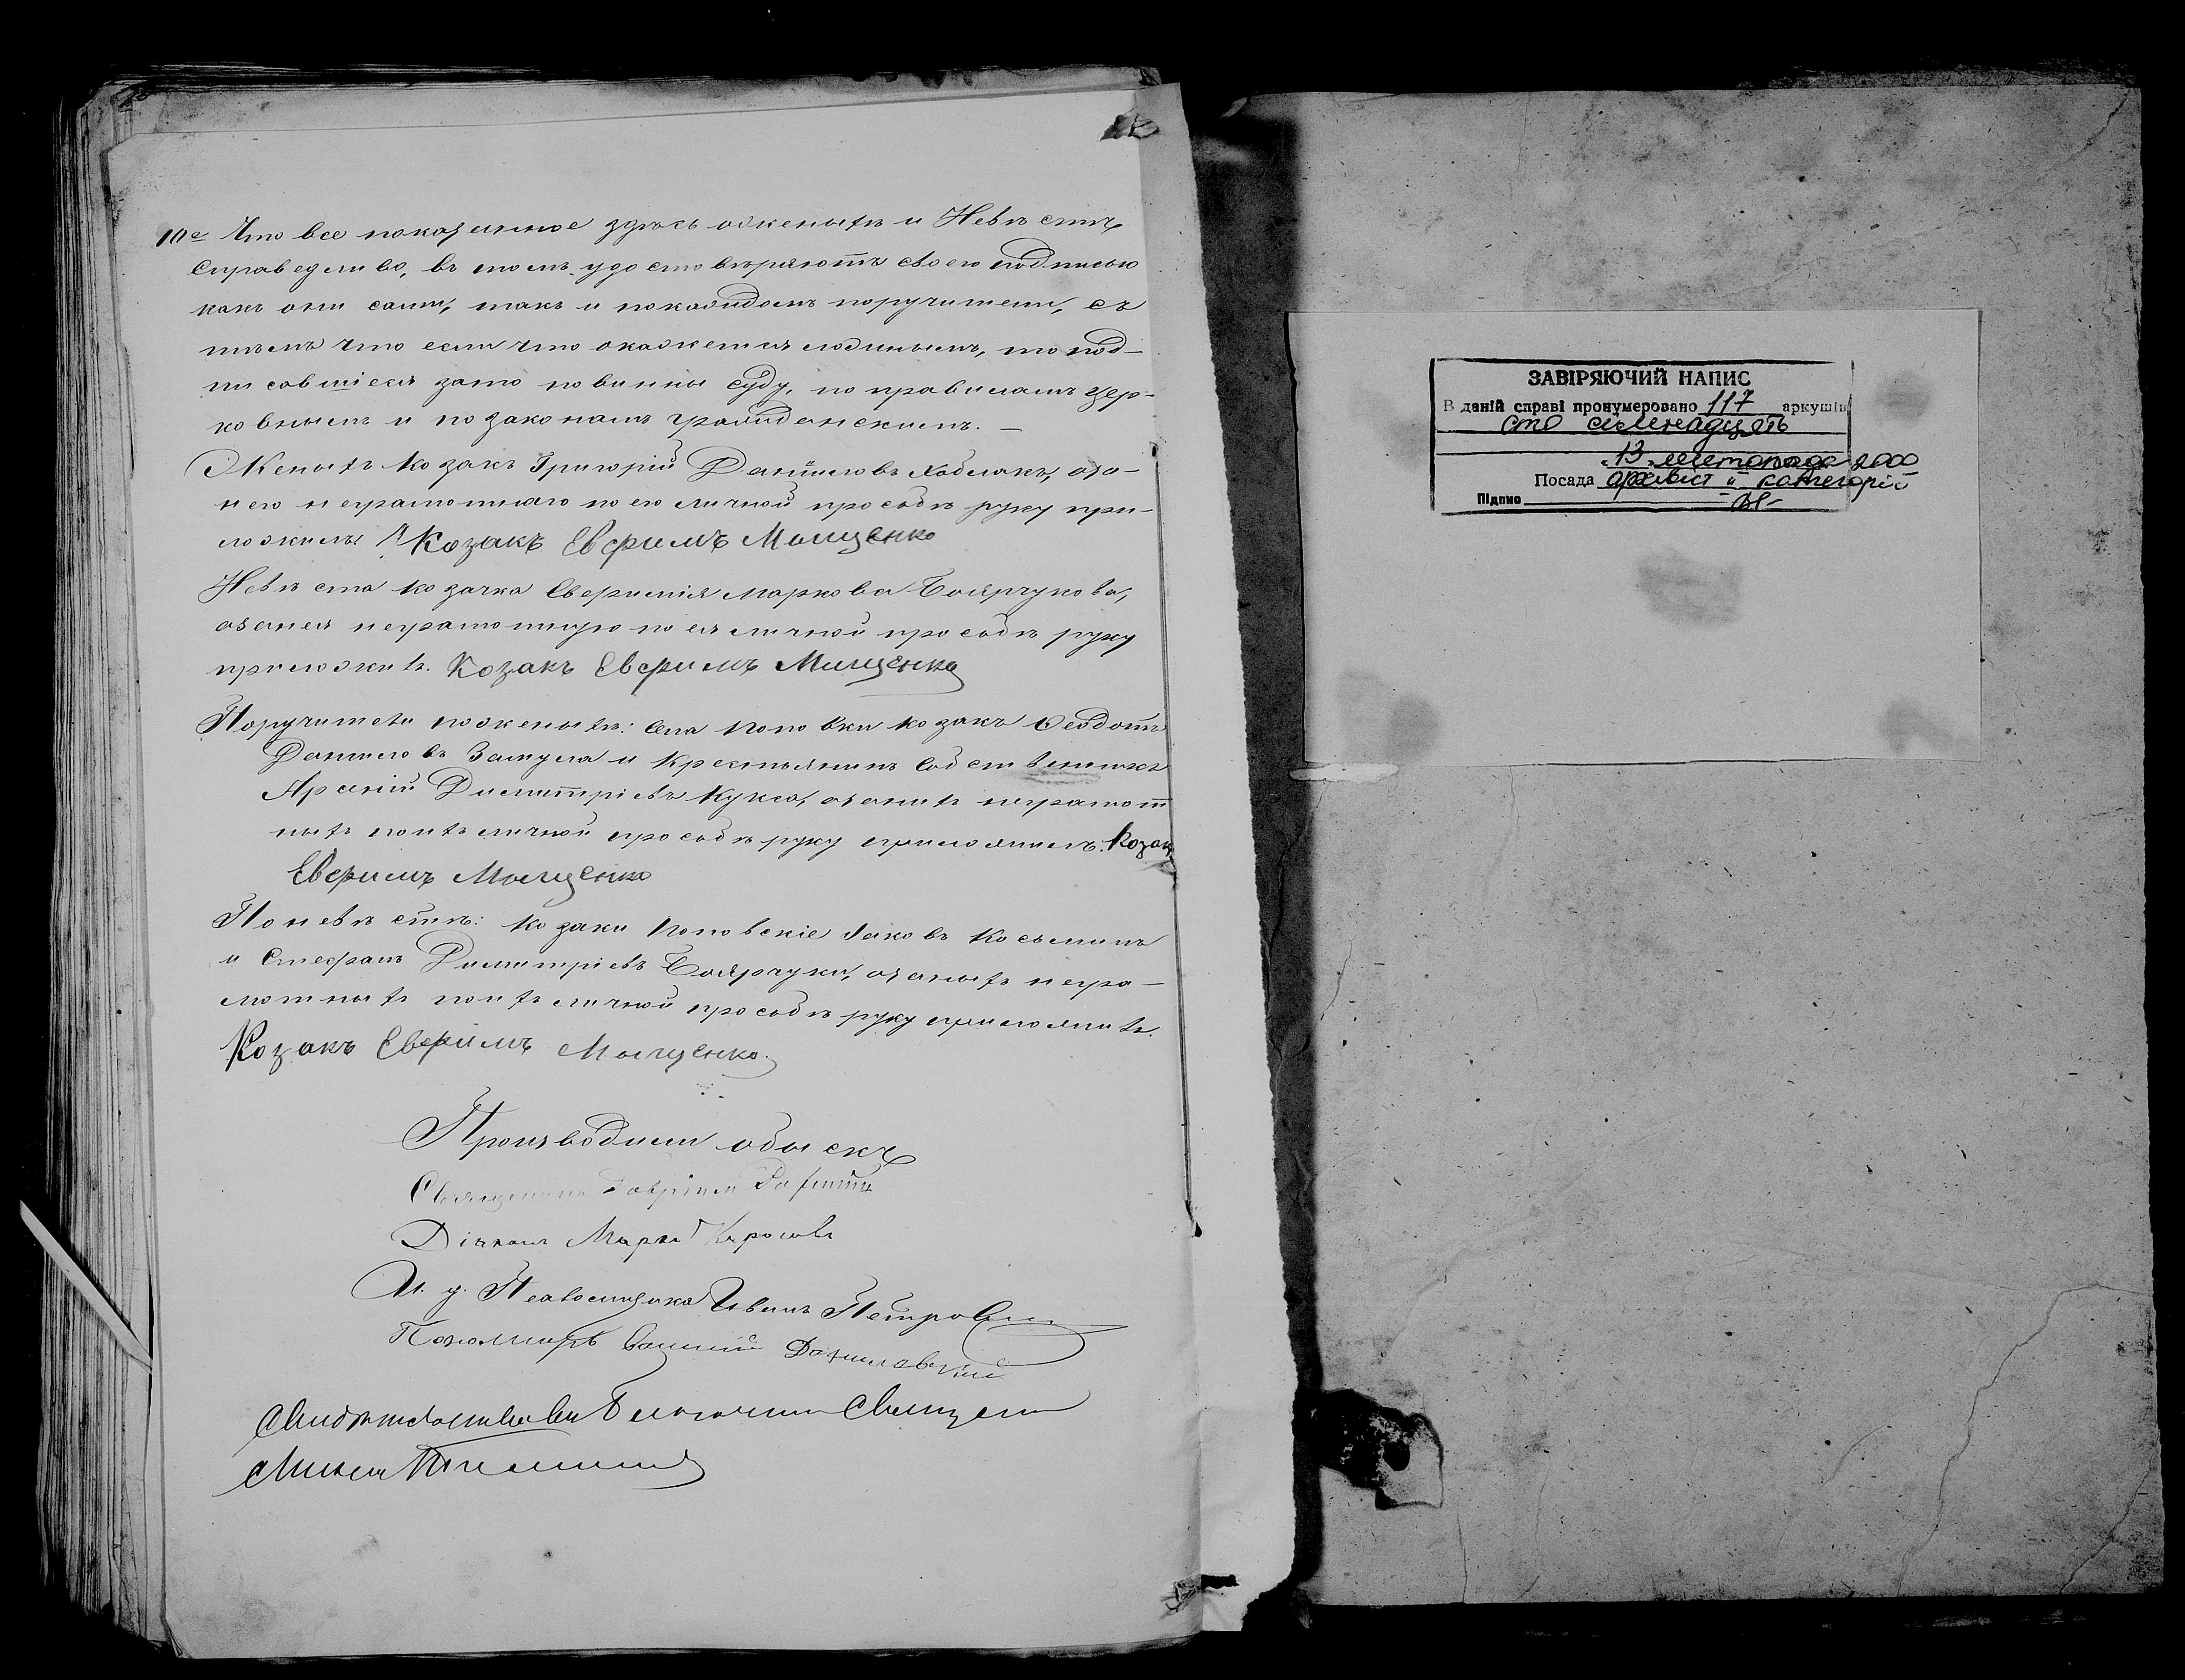 10е Что все показанное здѣсь о женихѣ и Невѣстѣ
справедливо, въ томъ удостовѣряютъ своею подписью
какъ они сами, такъ и по каждомъ поручители, съ
тѣмъ что если что окажется ложнымъ, то под-
писавшіеся зато повинны суду, по правиламъ цер-
ковнымъ и по законамъ гражданскимъ. —
Женихъ козакъ Григорій Даніиловъ, аза-
него неграмотнаго по его личной просьбѣ руку при-
ложилъ Козакъ Евфимъ Мищенко
Невѣста козачка Евфимія Маркова Боярчукова,
азанея неграмотную по ея личной просьбѣ руку
приложилъ. Козакъ Евфимъ Мищенко
Поручители по женихѣ: села Поповки козакъ Феодотъ
Даниловъ Замула и Крестьянинъ Собственникъ
Димитріевъ Кукса, азанихъ неграмот
ныхъ по ихъ личной просьбѣ руку приложилъ. Козакъ
Евфимъ Мищенко
По невѣстѣ: козаки Поповскіе Яковъ Косьминъ
и Стефанъ Димитріевъ Боярчуки, азаныхъ негра-
мотныхъ по ихъ личной просьбѣ руку приложилъ.
Козакъ Евфимъ Мищенко.
Производили обыскъ
Священникъ Гавріилъ
Діаконъ Марко
И. д. Псаломщика Иванъ Петров
Пономарь Даниловскій
ЗАВІРЯЮЧИЙ НАПИС
В даній справі пронумеровано 117 аркушів
сто сімнадцять
"13" листопада 2000
Посада архівіст II категорії
Підпис